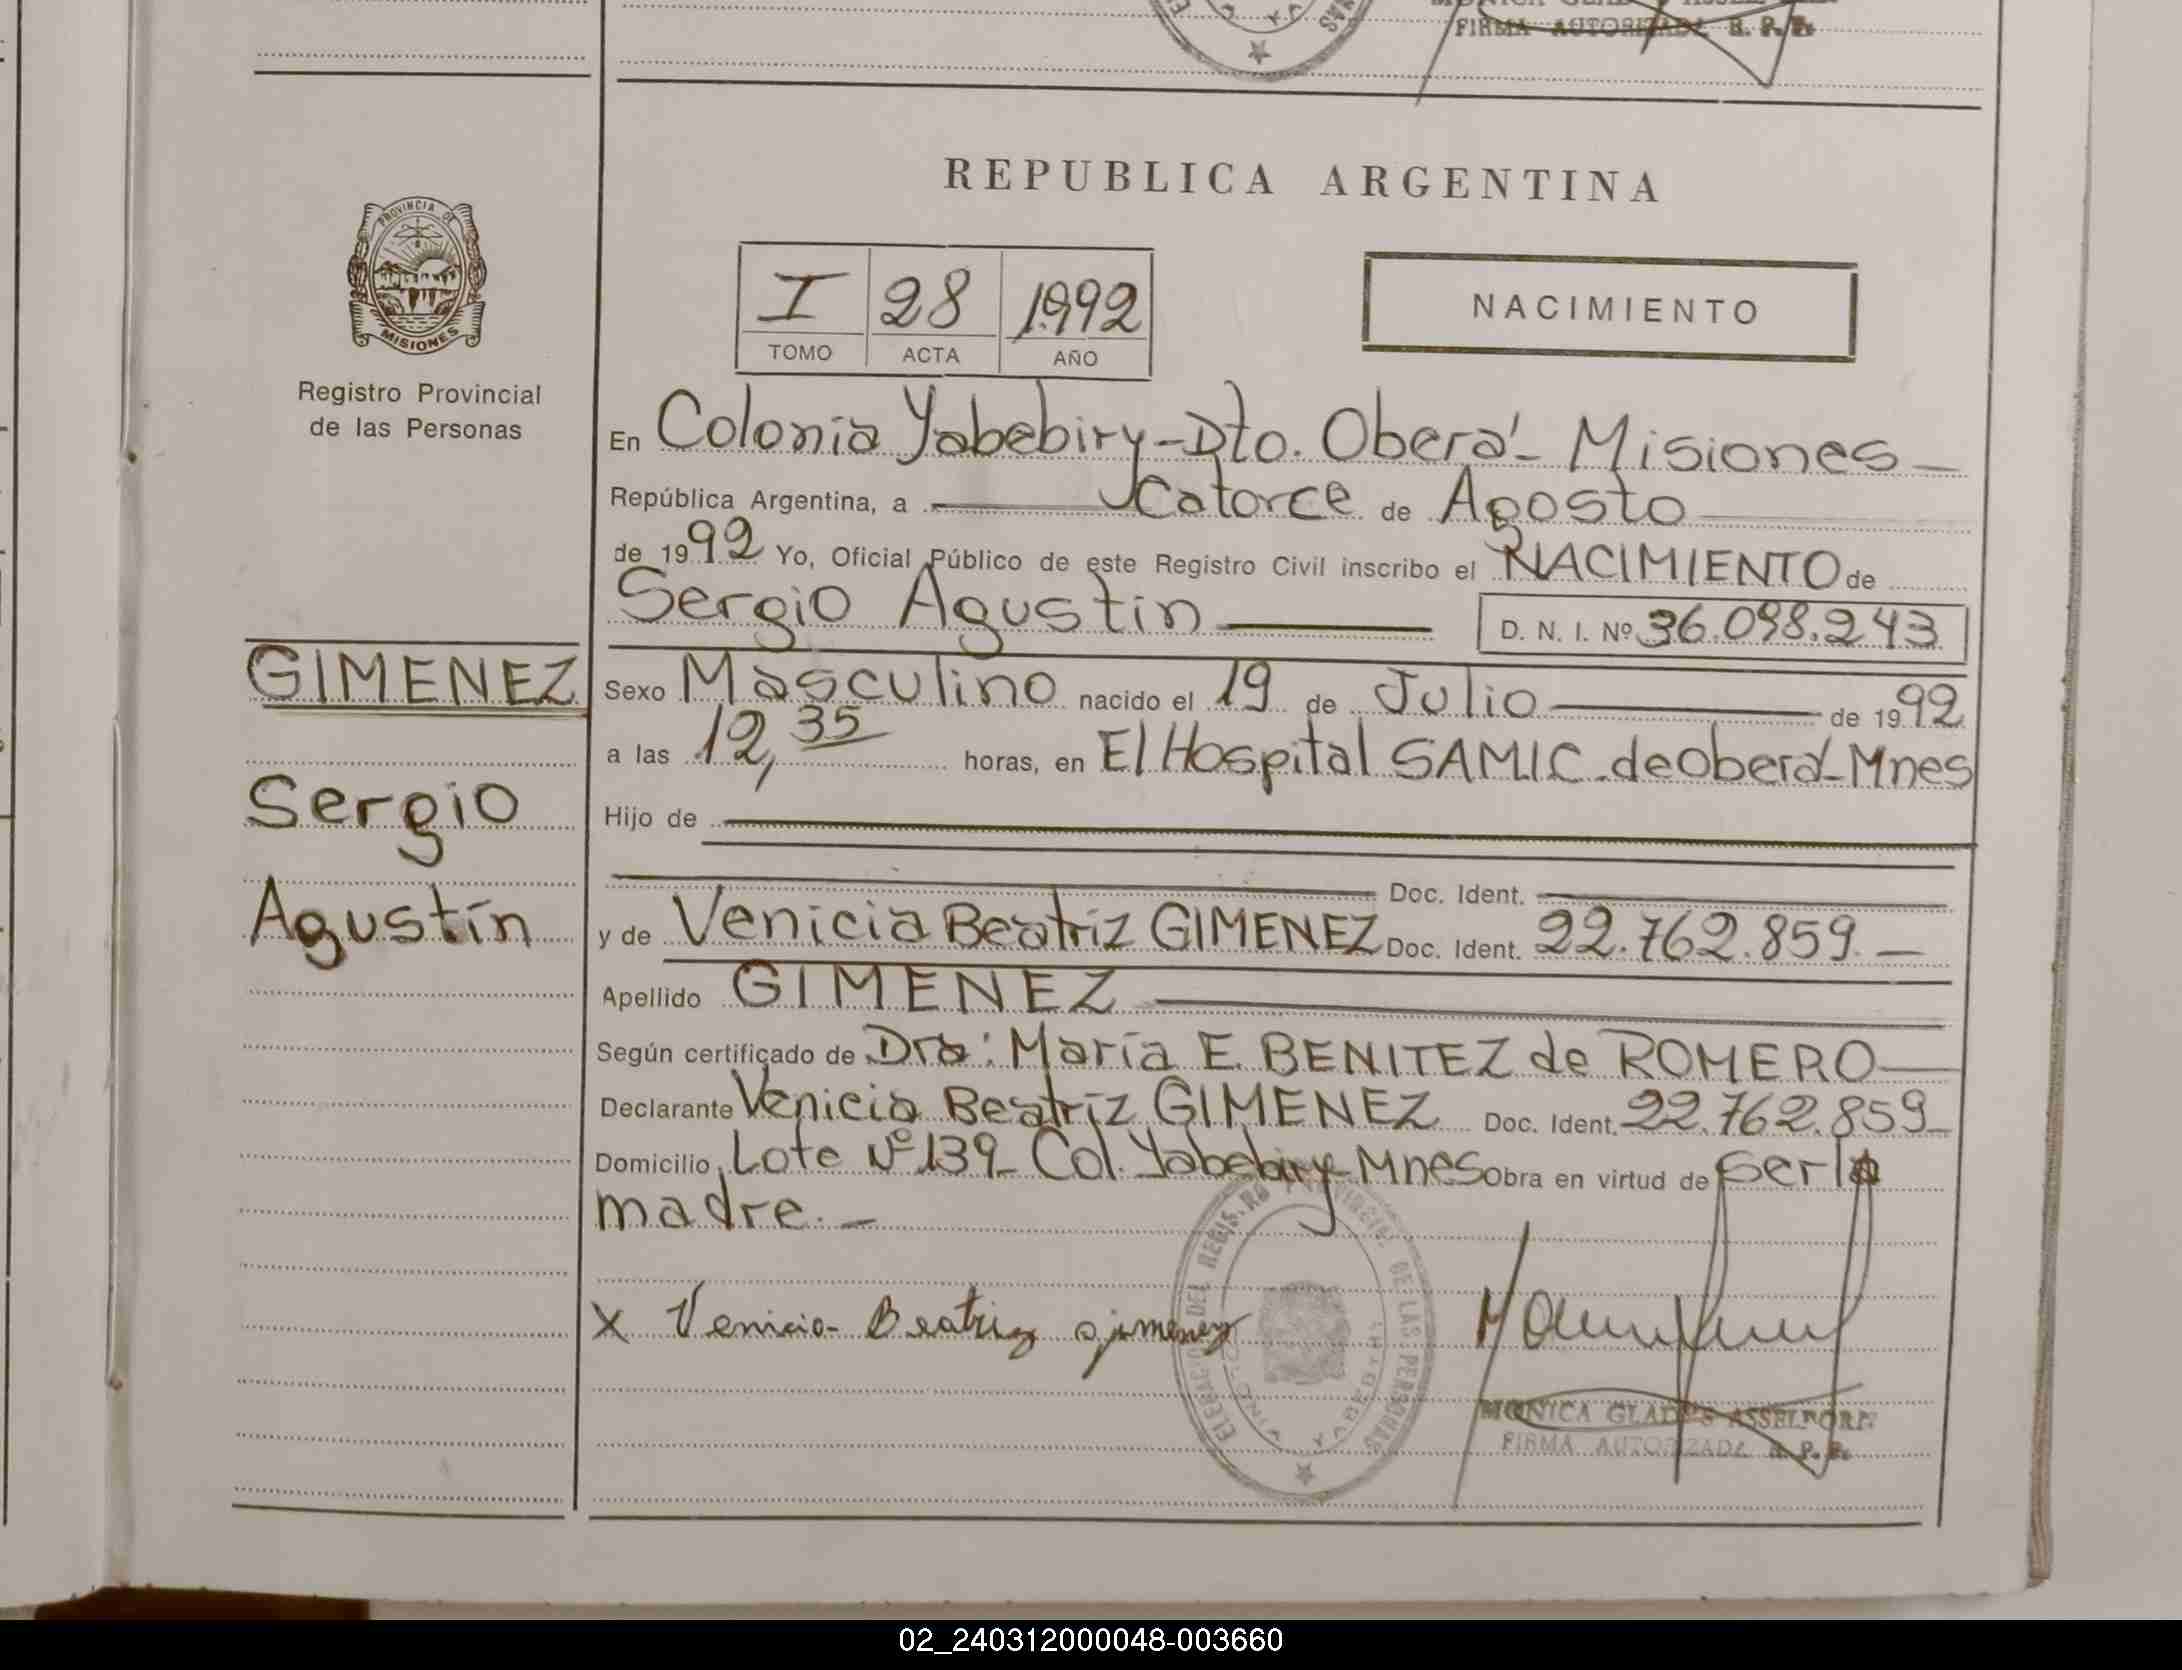 FIRMA AUTORIZADA R. P. P.
REPUBLICA ARGENTINA
PROVINCIA DE
MISIONES
Registro Provincial
de las Personas
I 28 1992
TOMO ACTA AÑO
NACIMIENTO
En Colonia Yabebiry - Dto. Oberá - Misiones -
República Argentina, a Catorce de Agosto
de 1992 Yo, Oficial Público de este Registro Civil inscribo el NACIMIENTO de
Sergio Agustin
D. N. I. Nº 36.098.243
GIMENEZ
Sergio
Agustín
Sexo Masculino nacido el 19 de Julio de 1992
a las 12,35 horas, en El Hospital SAMIC de Oberá - Mnes
Hijo de
Doc. Ident.
y de Venicia Beatríz GIMENEZ Doc. Ident. 22.762.859. -
Apellido GIMENEZ
Según certificado de Dra: María E. BENITEZ de ROMERO
Declarante Venicia Beatríz GIMENEZ Doc. Ident. 22.762.859
Domicilio Lote Nº 139 - Col. Yabebiry - Mnes Obra en virtud de ser la
madre. -
X Venicia Beatriz gimenez
DEL REGISTRO PROVINCIAL DE LAS PERSONAS
COLONIA YABEBIRY
MONICA GLADYS
FIRMA AUTORIZADA R. P. P.
02_240312000048-003660